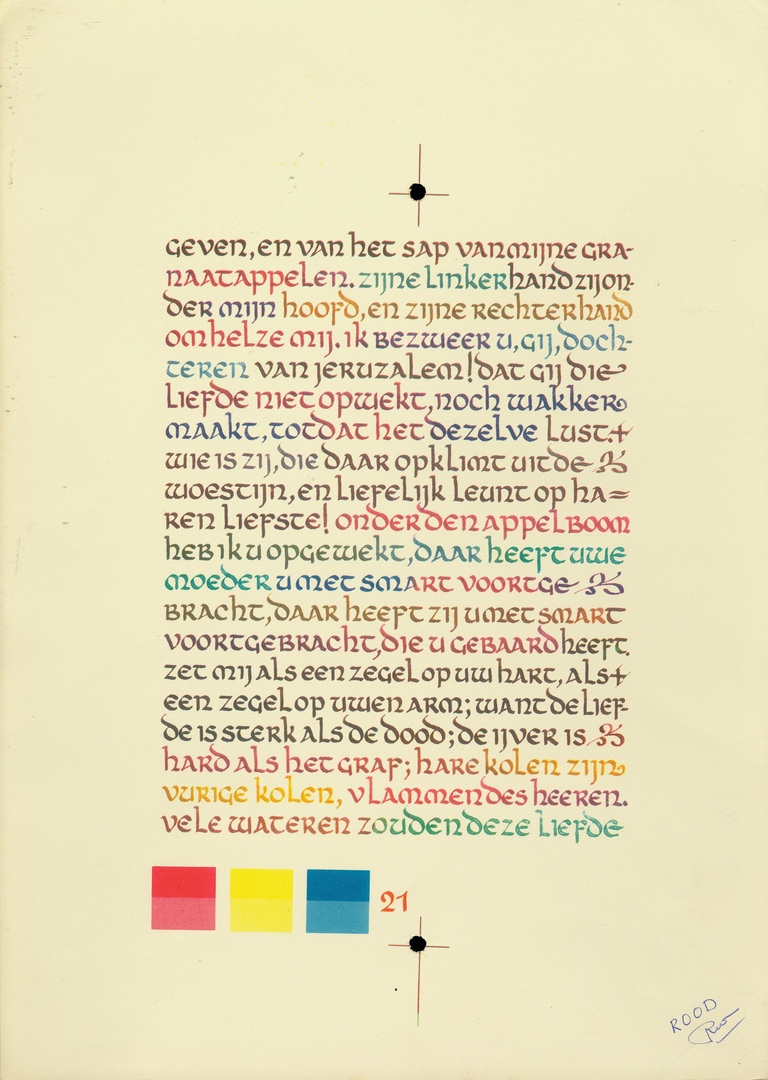 geven, en van het sap van mijne gra-
naatappelen. zijne linkerhand zij on-
der mijn hoofd, en zijne rechterhand
omhelze mij. ik bezweer u, gij, doch-
teren van jeruzalem! dat gij die
liefde niet opwekt, noch wakker
maakt, totdat het dezelve lust.
wie is zij, die daar opklimt uit de
woestijn, en liefelijk leunt op ha=
ren liefste! onder den appelboom
heb ik u opgewekt, daar heeft uwe
moeder u met smart voortge
bracht, daar heeft zij u met smart
voortgebracht, die u gebaard heeft.
zet mij als een zegel op uw hart, als
een zegel op uwen arm; want de lief-
de is sterk als de dood; de ijver is
hard als het graf; hare kolen zijn
vurige kolen, vlammen des heeren.
vele wateren zouden deze liefde
21
ROOD